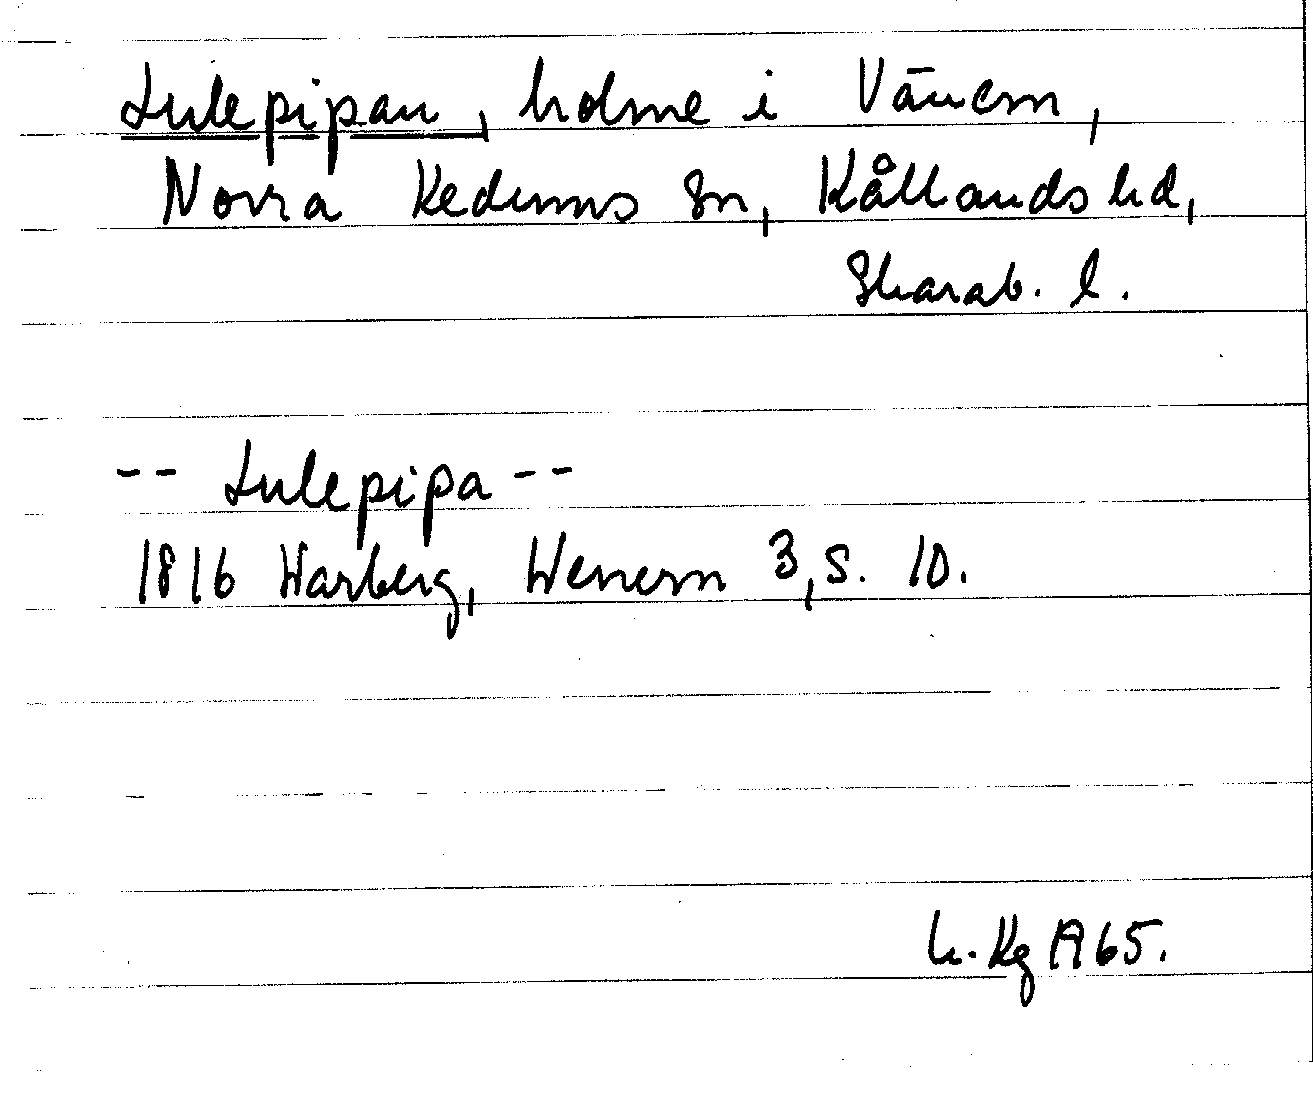 Lulepipan, holme i Vänern,
Norra Kedums sn, Kållands hd,
Skarab. l.
-- Lulepipa --
1816 Warberg, Wenern 3, s. 10.
Kg 1965.